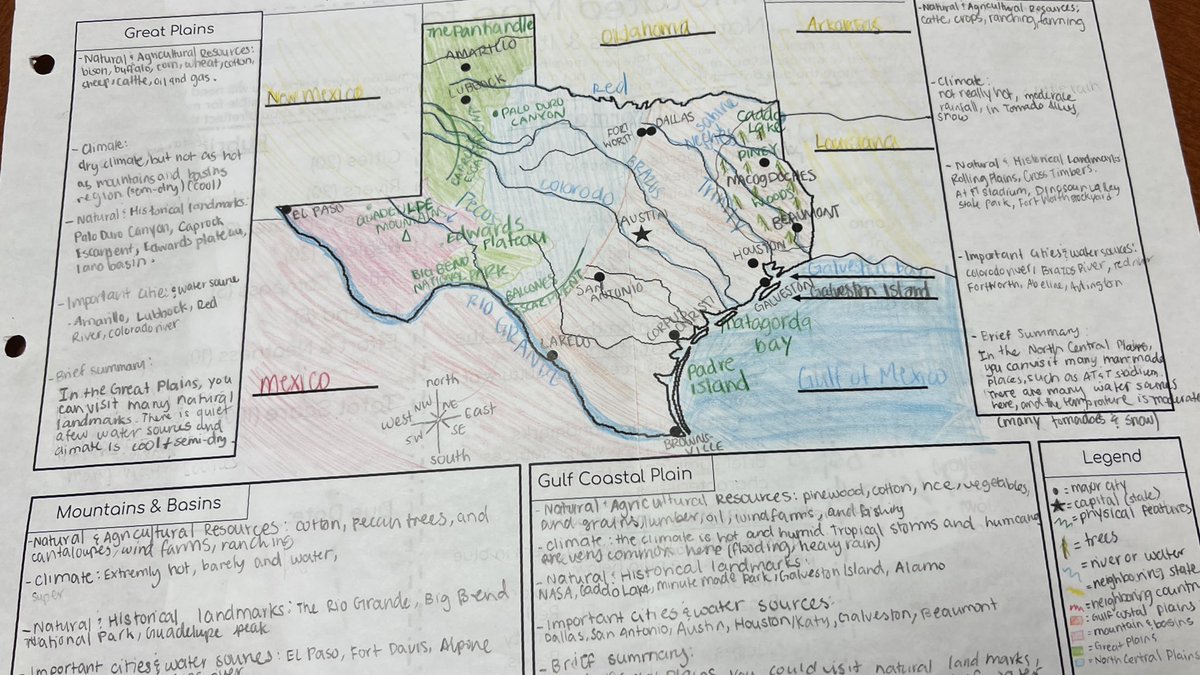 Great Plains
-Natural & Agricultural Resources:
bison, buffalo, corn, wheat, cotton,
sheep, cattle, oil and gas.
- Climate:
dry climate, but not as hot
as mountains and basins
region (semi-dry) (cool)
- Natural & Historical landmarks:
Palo Duro Canyon, Caprock
Escarpent, Edwards plateau,
lano basin.
- Important cities & water source
- Amarillo, Lubbock, Red
River, colorado river
- Brief summary:
In the Great Plains, you
can visit many natural
landmarks. There is quiet
a few water sources and
climate is cool & semi-dry.
The Panhandle
AMARILLO
LUBBOCK
PALO DURO
CANYON
CAPROCK
New Mexico
Oklahoma
Arkansas
Louisiana
Red
FORT
WORTH
DALLAS
Sabine
Neches
Trinity
Caddo
Lake
PINEY
NACOGDOCHES
WOODS
BEAUMONT
Colorado
Brazos
AUSTIN
HOUSTON
EL PASO
GUADELUPE
MOUNTAINS
Pecos
Edwards
Plateau
BIG BEND
NATIONAL PARK
BALCONES
ESCARPMENT
SAN
ANTONIO
GALVESTON
Galveston bay
Galveston Island
RIO GRANDE
CORPUS
CHRISTI
Matagorda
bay
LAREDO
Padre
Island
Gulf of Mexico
Mexico
BROWNS-
VILLE
north
NW NE
west East
SW SE
south
-Natural & Agricultural Resources:
cattle, crops, ranching, farming
- Climate:
not really hot, moderate rain
rainfall, in Tornado Alley,
snow
- Natural & Historical Landmarks
Rolling Plains, Cross Timbers.
AT&T Stadium, Dinosaur Valley
State Park, Fort Worth stockyard
- Important cities & water sources:
colorado river, Brazos River, red river
Fort Worth, Abeline, Arlington
- Brief Summary:
In the North Central Plains,
you can visit many manmade
places, such as AT&T stadium.
There are many water sources
here, and the temprature is moderate
(many tornadoes & snow)
Mountains & Basins
- Natural & Agricultural Resources: cotton, Pecan trees, and
cantaloupes, wind farms, ranching
- Climate: Extremly hot, barely and water,
super
- Natural & Historical landmarks: The Rio Grande, Big Bend
National Park, Guadelupe peak
- Important cities & water sources: El Paso, Fort Davis, Alpine
Gulf Coastal Plain
- Natural & Agricultural Resources: pinewood, cotton, rice, vegetables,
and grains, lumber, oil, wind farms, and fishing
- climate: the climate is hot and humid. Tropical storms and
are very common here (flooding, heavy rain)
- Natural & Historical landmarks:
NASA, Caddo Lake, minute made Park, Galveston Island, Alamo
- Important cities & water sources:
Dallas, San Antonio, Austin, Houston/Katy, Galveston, Beaumont
- Brief summary:
Plains you could visit natural land marks,
Legend
= major city
= capital (state)
= physical features
= trees
= river or water
= neighboring state
= neighboring count
= Gulf costal plains
= mountain & basins
= Great Plains
= North Central Plains